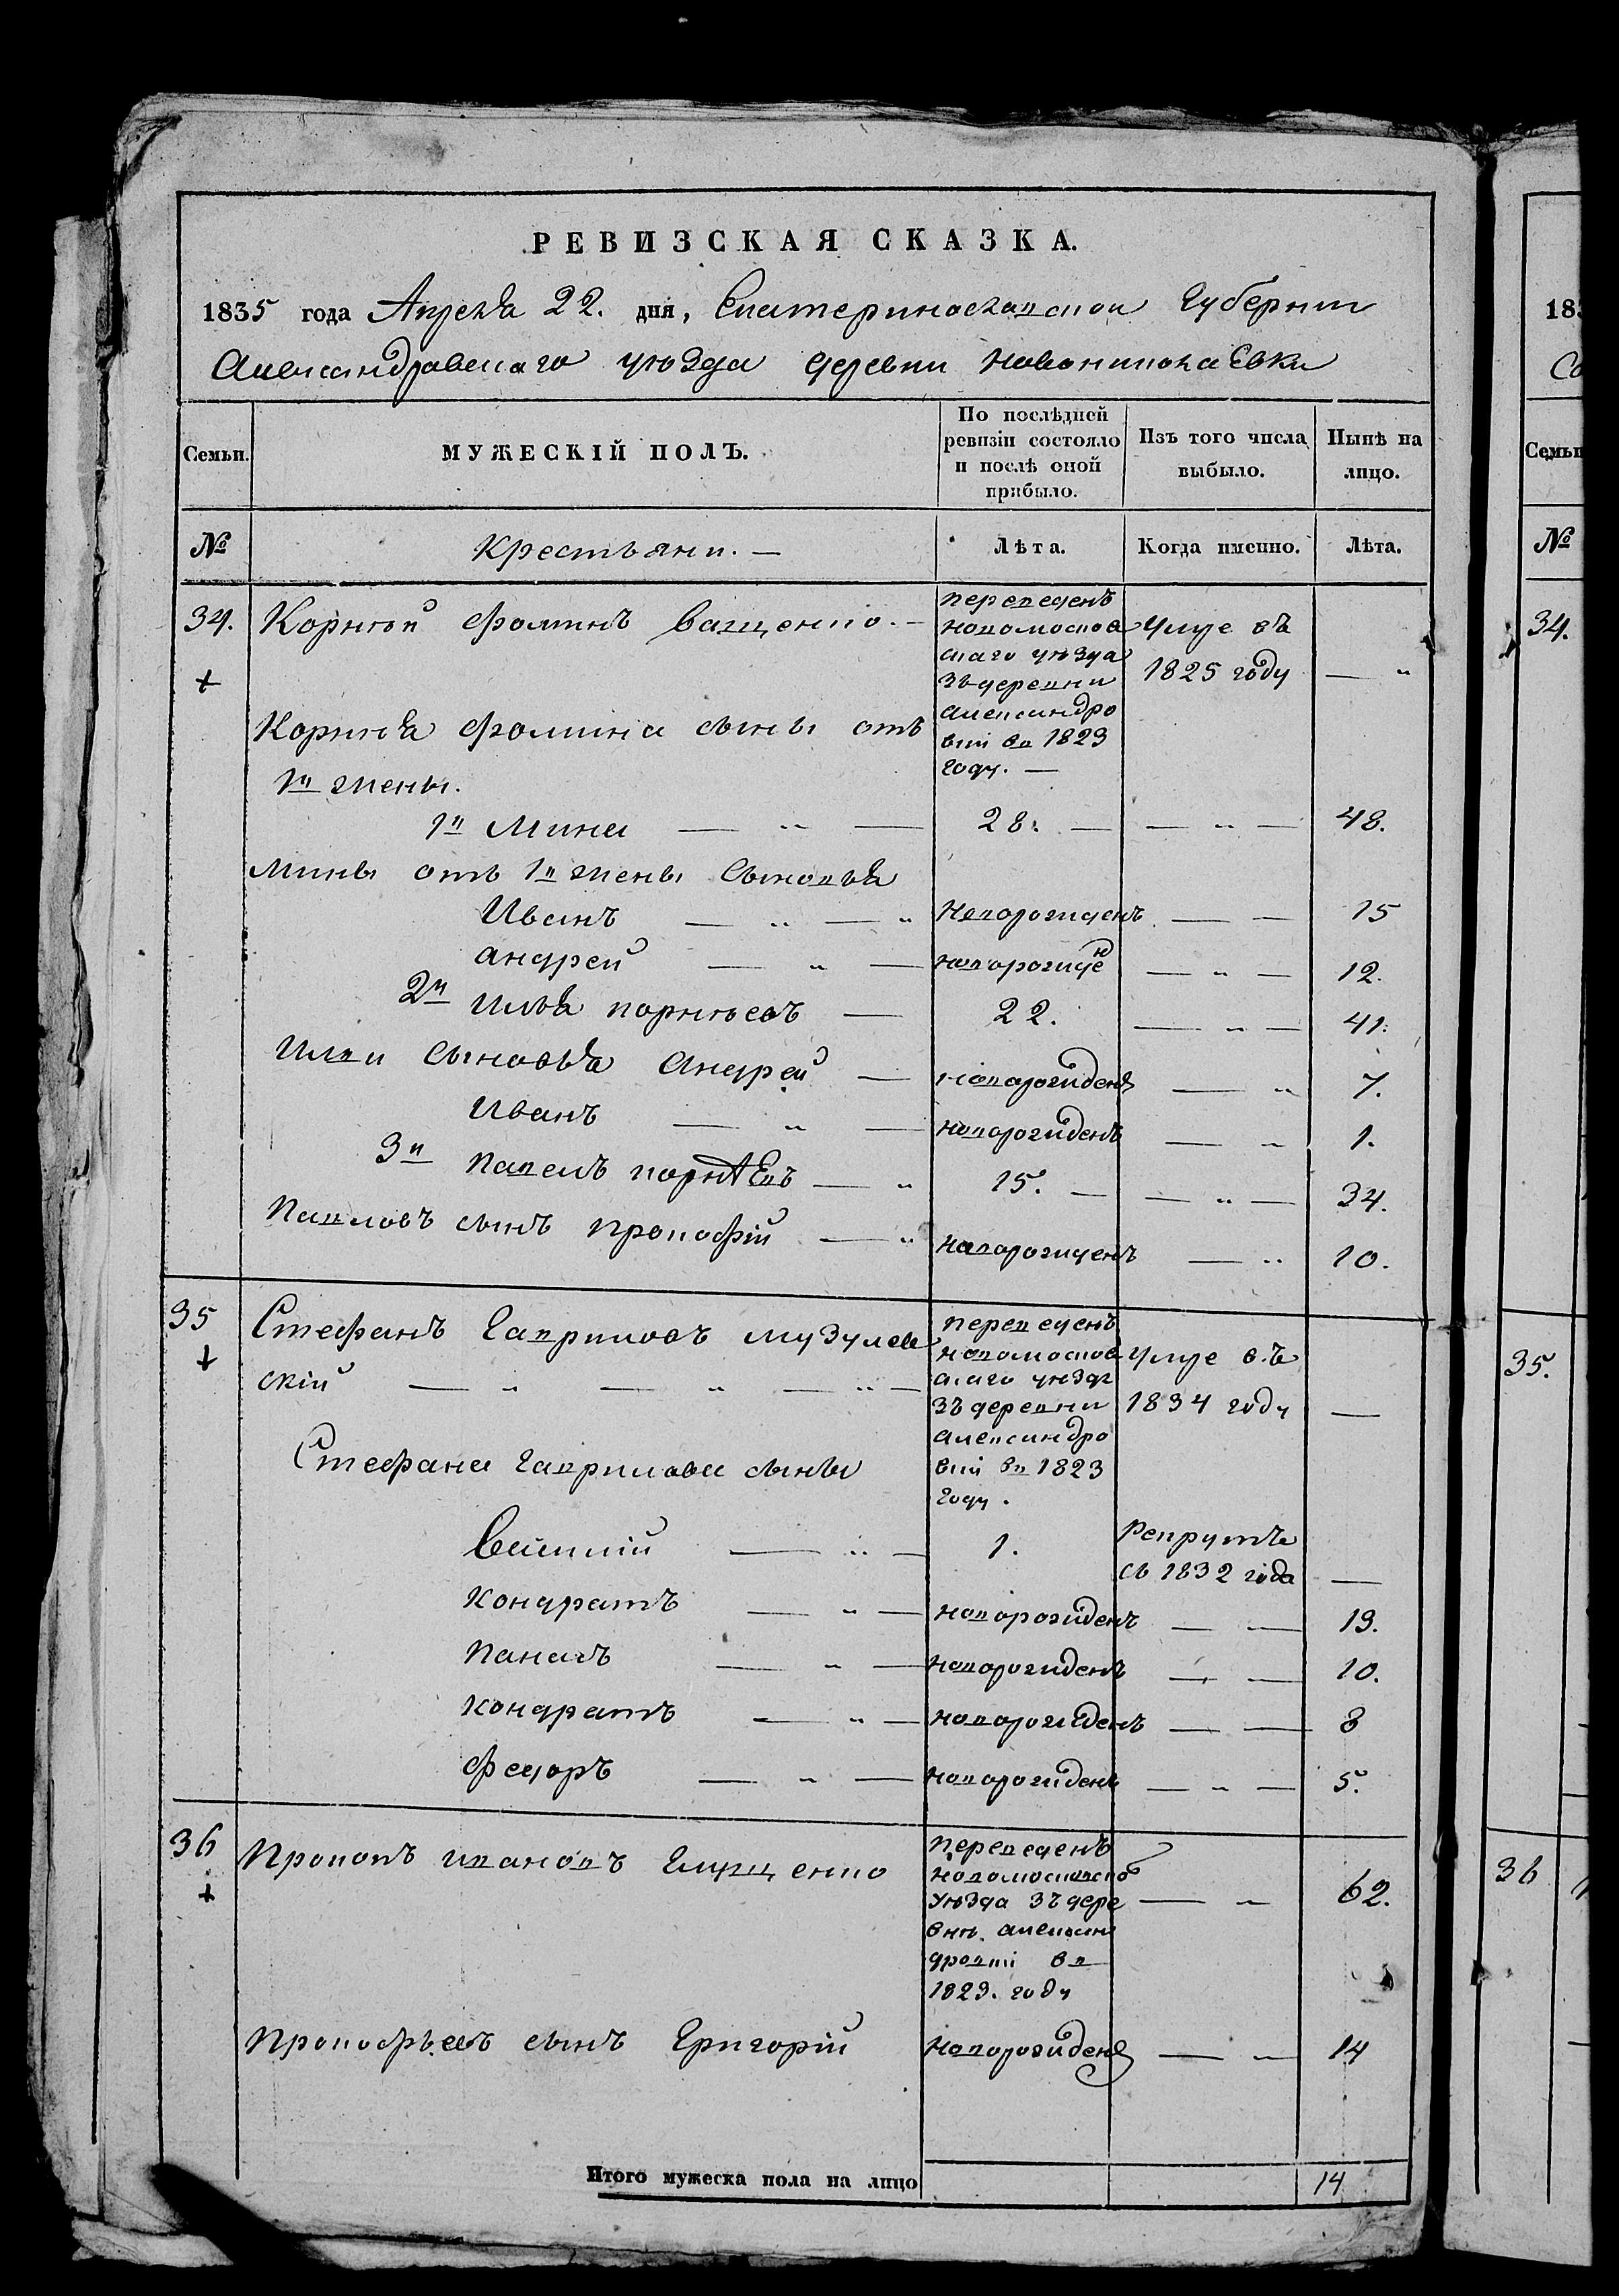 РЕВИЗСКАЯ СКАЗКА.
1835 года Апреля 22. дня, Екатеринославской Губернии
Александровскаго уезда деревни Новониколаевки
Семьи.
МУЖЕСКІЙ ПОЛЪ.
По послѣдней ревизіи состояло и послѣ оной прибыло.
Изъ того числа выбыло.
Нынѣ на лицо.
№
Крестьяни. —
Лѣта.
Когда именно.
Лѣта.
34. Корней Фоминъ Ващенко. —
переведенъ
новомосков
скаго уезда
зъ деревни
александро
вки въ 1823
году. —
Умре въ
1825 году
— "
Корнея Фомина сыны отъ
1й жены.
1й Мина — " — 28. — — " — 48.
Мины отъ 1й жены Сыновья
Иванъ — " — " Новорожденъ — — 15
Андрей — " — новорожден — " — 12.
2й Илья корнеевъ — 22. — " — 41.
Ильи Сыновья Андрей — новорожденъ — " 7.
Иванъ — " — новорожденъ — " 1.
3й Павелъ корнѣевъ — " 15. — — " — 34.
Павловъ сынъ Прокофій — " новорожденъ — " 10.
35 Стефанъ Гавриловъ Музулев
скій — " — " — " —
переведенъ
новомосков
скаго уезда
зъ деревни
александро
вки въ 1823
году.
умре въ
1834 году
—
Стефана Гаврилова сыны
Василий — " — 1. Рекрутъ
съ 1832 года —
Кондратъ — " — новорожденъ — — 13.
Панасъ — " — новорожденъ — — 10.
Кондратъ — " — новорожденъ — — 8
Федоръ — " — новорожденъ — " — 5.
36 Прокопъ Ивановъ Глущенко
переведенъ
новомосковског
уезда зъ дере
вни александ
дровки въ
1823. году
— " 62.
Прокофьевъ сынъ Григорій новорожденъ — — 14
Итого мужеска пола на лицо 14
183
Семьи
№
34.
35.
36